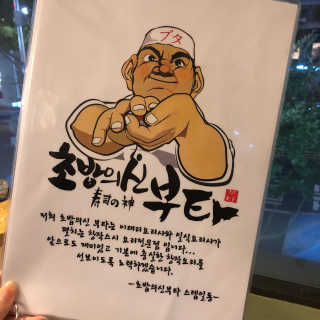 ブタ
초밥의신 부타
寿司の神
저희 초밥의신 부타는 이태리요리사와 일식요리사가
펼치는 창작스시 요리전문점 입니다...
앞으로도 재미있고 기본에 충실한 창작요리를
선보이도록 노력하겠습니다.
-초밥의신부타 스텝일동-